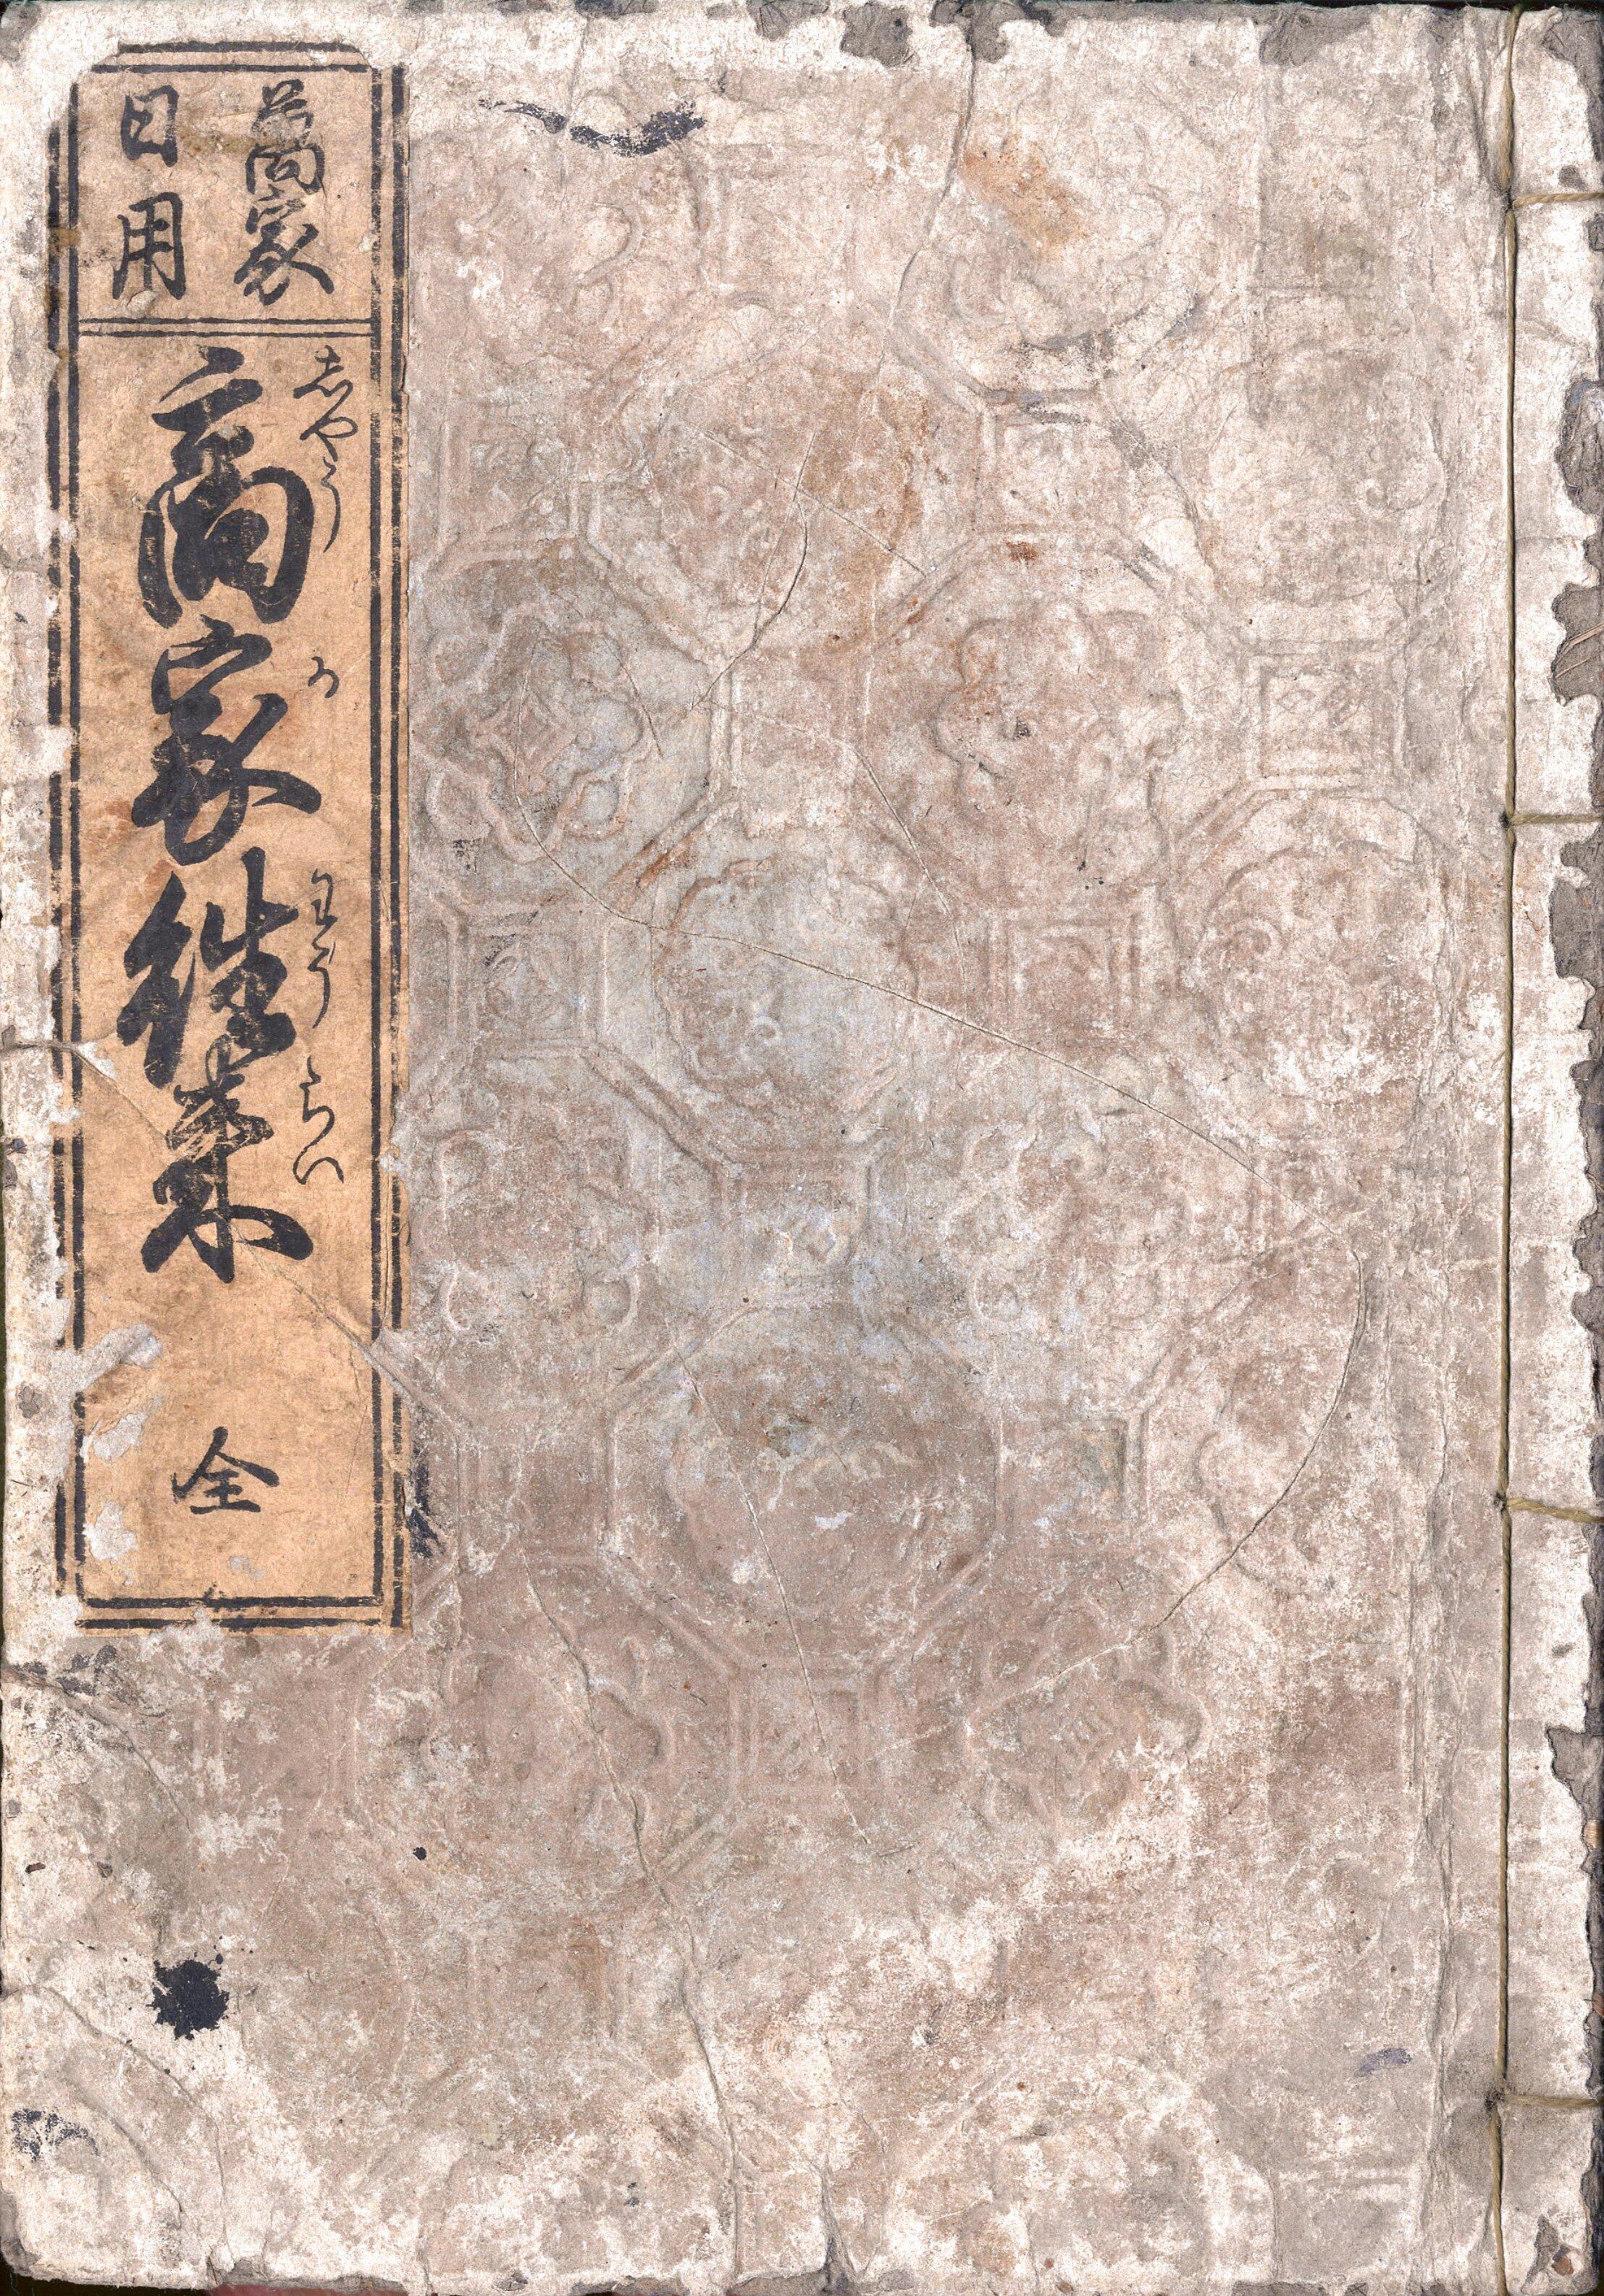 萬家
日用
商家往来
しやうかわうらい
全